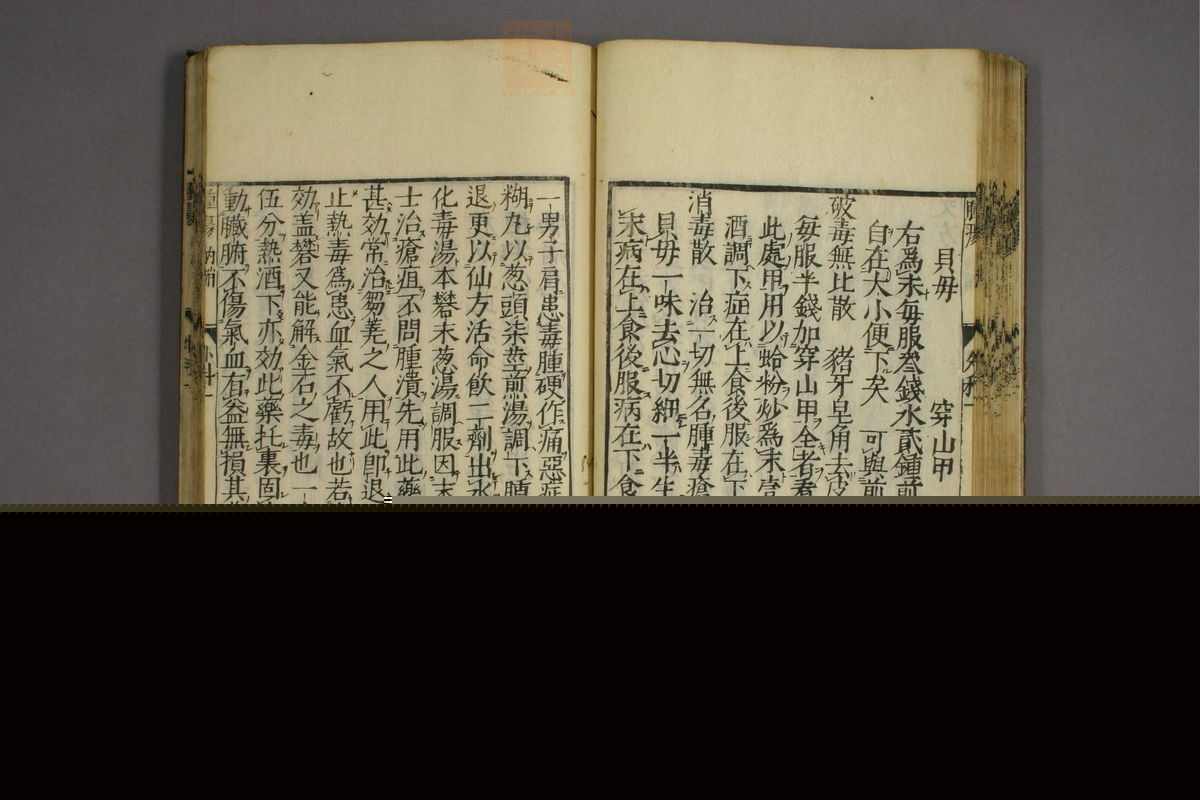 貝毋　穿山甲
右爲末每服叁錢水貳鍾前
自在大小便下矣　可與前
破毒無比散　豬牙皂角去皮
每服半錢加穿山甲全者看
此處甲用以蛤粉炒爲末壹
酒調下症在上食後服在下
消毒散　治一切無名腫毒瘡
貝毋一味去心切細一半生
末病在上食後服病在下食
一男子肩患毒腫硬作痛惡症
糊丸以葱頭柒莖煎湯調下腫
退更以仙方活命飲二劑出水
化毒湯本礬末葱湯調服因末
士治瘡疽不問腫潰先用此藥
甚效常治芻蕘之人用此卽退
止熱毒爲患血氣不虧故也若
効盖礬又能解金石之毒也一
伍分熱酒下亦効此藥托裏固
動臟腑不傷氣血有益無損其